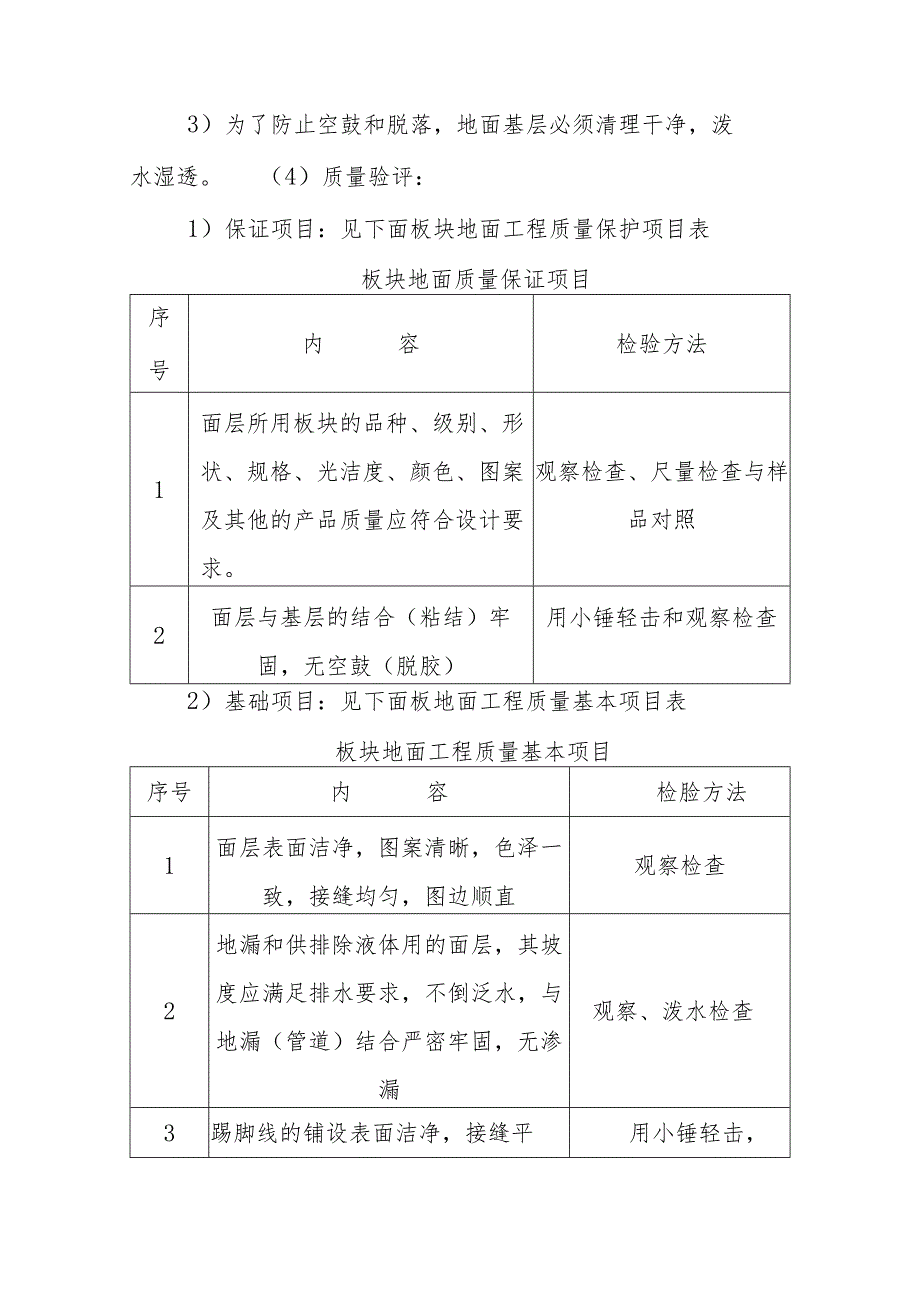 3）为了防止空鼓和脱落，地面基层必须清理干净，泼
水湿透。 （4）质量验评：
1）保证项目：见下面板块地面工程质量保护项目表
板块地面质量保证项目
序
号
内 容
检验方法
1
面层所用板块的品种、级别、形
状、规格、光洁度、颜色、图案
及其他的产品质量应符合设计要
求。
观察检查、尺量检查与样
品对照
2
面层与基层的结合（粘结）牢
固，无空鼓（脱胶）
用小锤轻击和观察检查
2）基础项目：见下面板地面工程质量基本项目表
板块地面工程质量基本项目
序号
内 容
检脸方法
1
面层表面洁净，图案清晰，色泽一
致，接缝均匀，图边顺直
观察检查
2
地漏和供排除液体用的面层，其坡
度应满足排水要求，不倒泛水，与
地漏（管道）结合严密牢固，无渗
漏
观察、泼水检查
3
踢脚线的铺设表面洁净，接缝平
用小锤轻击，